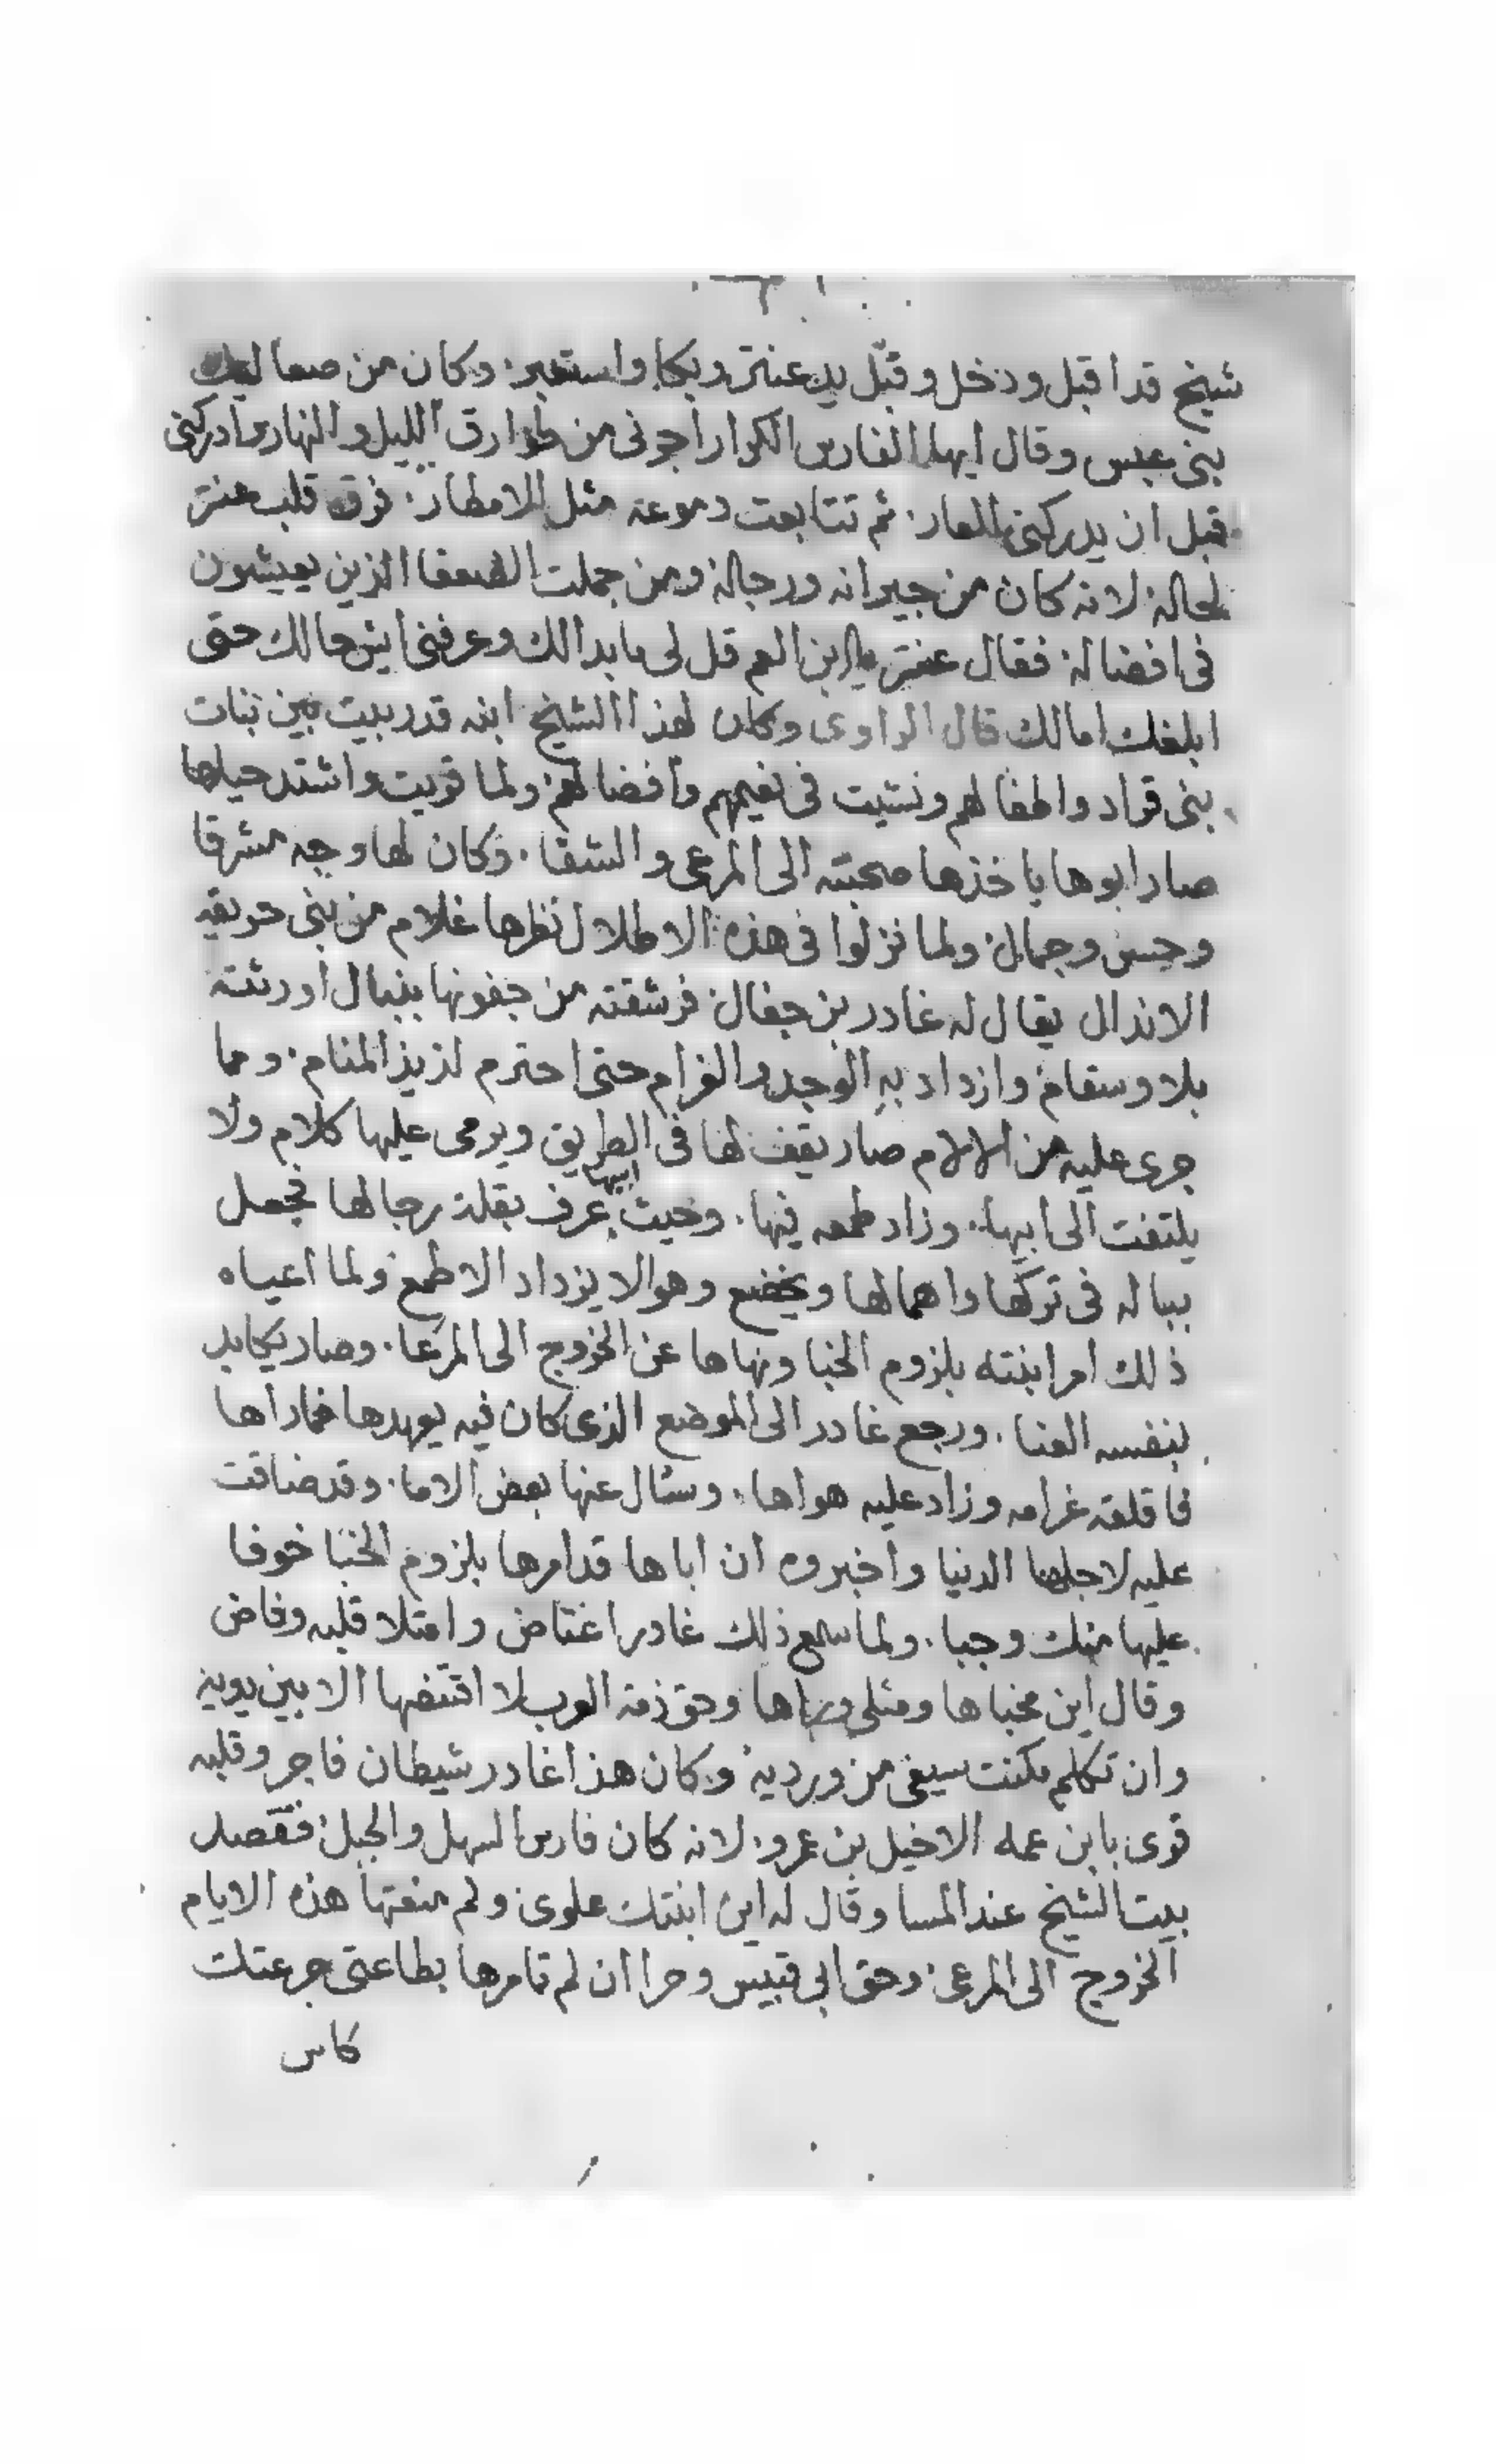 شيخ قد اقبل ودخل وقبّل يد عنتر وبكا واستعبر. وكان من صعاليك
بني عبس وقال ايها الفارس الكرار اجرني من طوارق الليل والنهار وادركني
قبل ان يدركني العار. ثم تتابعت دموعه مثل الامطار. فرق قلب عنتر
لحاله. لانه كان من جيرانه ورجاله ومن جملت الضعفا الذين يعيشون
في افضاله. فقال عنتر يا ابن العم قل لي ما بدا لك وعرفني ايش حالك حتى
ابلغك امالك قال الراوى وكان لهذا الشيخ ابنه قد ربيت بين بنات
بني قراد واطفالهم ونشيت في نعيمهم وافضالهم. ولما قويت واشتد حيلها
صار ابوها ياخذها صحبته الى المرعى والشقا. وكان لها وجه مشرقا
وحسن وجمال. ولما نزلوا في هذه الاطلال نظرها غلام من بني حريقه
الاندال يقال له غادر بن جفال. فرشقته من جفونها بنبال اورثته
بلا وسقام وازداد به الوجد والغرام حتى احترم لذيذ المنام. ومما
جرى عليه من الالام صار يقف لها في الطريق ويرمى عليها كلام ولا
يلتفت الى ابيها. وزاد طمعه فيها. وحيث عرف ابيها بقلة رجالها فجعل
بباله في تركها واهمالها ويخضع وهو الا يزداد الا طمع ولما اعياه
ذلك امر ابنته بلزوم الخبا ونهاها عن الخروج الى المرعا. وصار يكابد
بنفسه العنا. ورجع غادر الى الموضع الذى كان فيه يوهدها فما راها
فاقلقه غرامه وزاد عليه هواها. وسئال عنها بعض الاما. وقد ضاقت
عليه لاجلها الدنيا واخبروه ان اباها قد امرها بلزوم الخبا خوفا
عليها منك وجبا. ولما سمع ذلك غادر اغتاض وامتلا قلبه وفاض
وقال اين مخباها ومثلي وراها وحق ذمة العرب لا اقتضها الا بين يديه
وان تكلم مكنت سيفي من وريديه وكان هذا غادر شيطان فاجر وقلبه
قوى بابن عمه الاخيل بن عمرو. لانه كان فارس السهل والجبل. فقصد
بيت الشيخ عند المسا وقال له اين ابنتك علوى ولم منعتها هذه الايام
الخروج الى المرعى. وحق ابي قبيس وحرا ان لم تامرها بطاعتي جرعتك
كاس